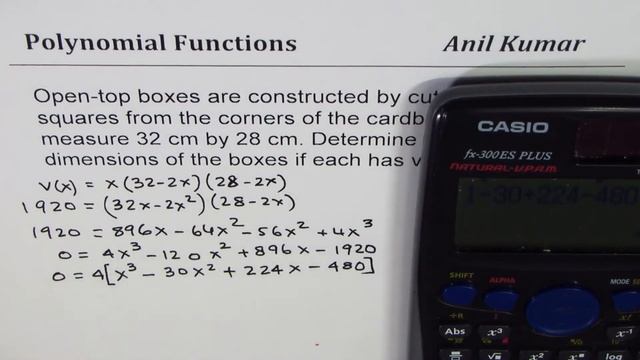 Polynomial Functions
Anil Kumar
Open-top boxes are constructed by cut
squares from the corners of the cardb
measure 32 cm by 28 cm. Determine
dimensions of the boxes if each has v
V(x) = x(32-2x)(28-2x)
1920 = (32x-2x²)(28-2x)
1920 = 896x - 64x² - 56x² + 4x³
0 = 4x³ - 120x² + 896x - 1920
0 = 4[x³ - 30x² + 224x - 480]
CASIO
fx-300ES PLUS
NATURAL-V.P.A.M.
1-30+224-480
SHIFT
ALPHA
MODE
Abs
x³
x⁻¹
log